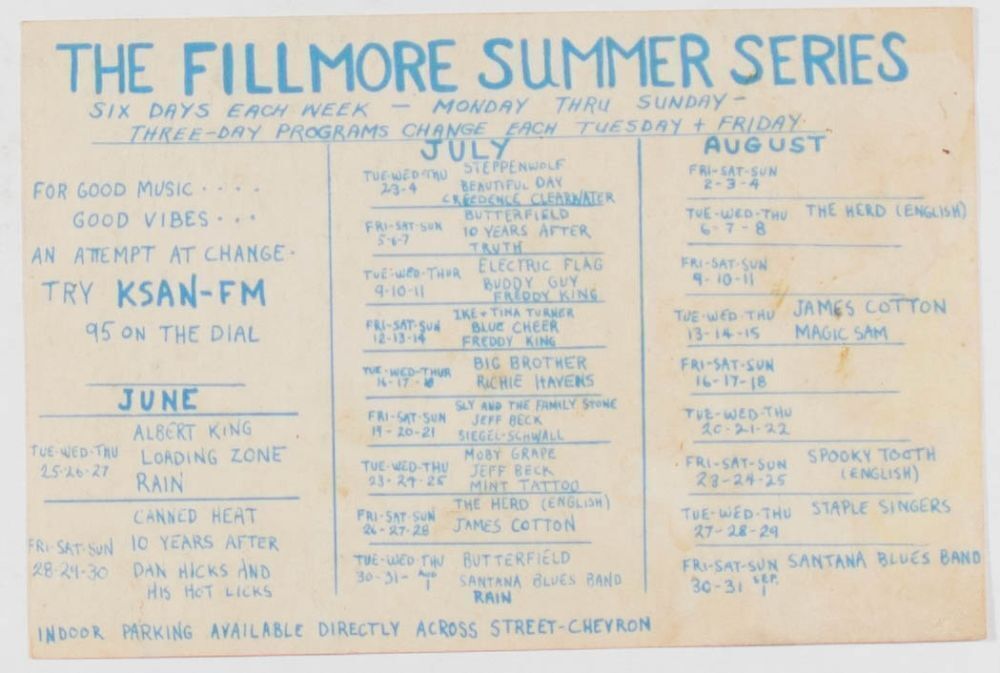 THE FILLMORE SUMMER SERIES
SIX DAYS EACH WEEK — MONDAY THRU SUNDAY —
THREE-DAY PROGRAMS CHANGE EACH TUESDAY + FRIDAY.
FOR GOOD MUSIC . . . .
GOOD VIBES . . .
AN ATTEMPT AT CHANGE.
TRY KSAN-FM
95 ON THE DIAL
JUNE
TUE-WED-THU
25-26-27
ALBERT KING
LOADING ZONE
RAIN
FRI-SAT-SUN
28-29-30
CANNED HEAT
10 YEARS AFTER
DAN HICKS AND
HIS HOT LICKS
JULY
TUE-WED-THU
2-3-4
STEPPENWOLF
BEAUTIFUL DAY
CREEDENCE CLEARWATER
FRI-SAT-SUN
5-6-7
BUTTERFIELD
10 YEARS AFTER
TRUTH
TUE-WED-THUR
9-10-11
ELECTRIC FLAG
BUDDY GUY
FREDDY KING
FRI-SAT-SUN
12-13-14
IKE + TINA TURNER
BLUE CHEER
FREDDY KING
TUE-WED-THUR
16-17-18
BIG BROTHER
RICHIE HAVENS
FRI-SAT-SUN
19-20-21
SLY AND THE FAMILY STONE
JEFF BECK
SIEGEL-SCHWALL
TUE-WED-THU
23-24-25
MOBY GRAPE
JEFF BECK
MINT TATTOO
FRI-SAT-SUN
26-27-28
THE HERD (ENGLISH)
JAMES COTTON
TUE-WED-THU
30-31- AUG 1
BUTTERFIELD
SANTANA BLUES BAND
RAIN
AUGUST
FRI-SAT-SUN
2-3-4
TUE-WED-THU
6-7-8
THE HERD (ENGLISH)
FRI-SAT-SUN
9-10-11
TUE-WED THU
13-14-15
JAMES COTTON
MAGIC SAM
FRI-SAT-SUN
16-17-18
TUE-WED-THU
20-21-22
FRI-SAT-SUN
23-24-25
SPOOKY TOOTH
(ENGLISH)
TUE-WED-THU
27-28-29
STAPLE SINGERS
FRI-SAT-SUN
30-31 SEP. 1
SANTANA BLUES BAND
INDOOR PARKING AVAILABLE DIRECTLY ACROSS STREET-CHEVRON